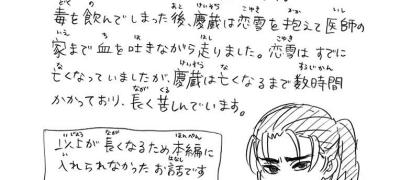 毒を飲んでしまった後、慶蔵は恋雪を抱えて医師の
家まで血を吐きながら走りました。恋雪はすでに
亡くなっていましたが、慶蔵は亡くなるまで数時間
かかっており、長く苦しんでいます。
以上が長くなるため本編に
入れられなかったお話です